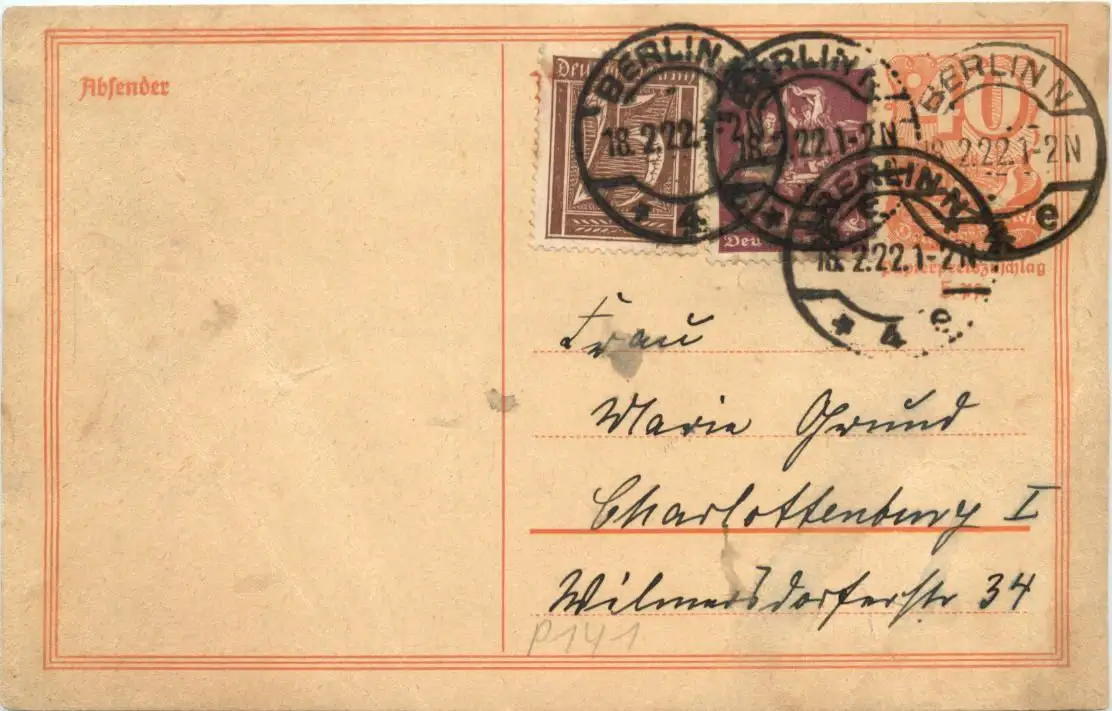 Absender
BERLIN N
18.2.22.1-2N
* 4 e
BERLIN N
18.2.22.1-2N
* 4 e
BERLIN N
18.2.22.1-2N
4 e
BERLIN N
18.2.22.1-2N
* 4 e
40
Papierpreiszuschlag
Frau
Marie Grund
Charlottenburg I
Wilmersdorferstr 34
P 141